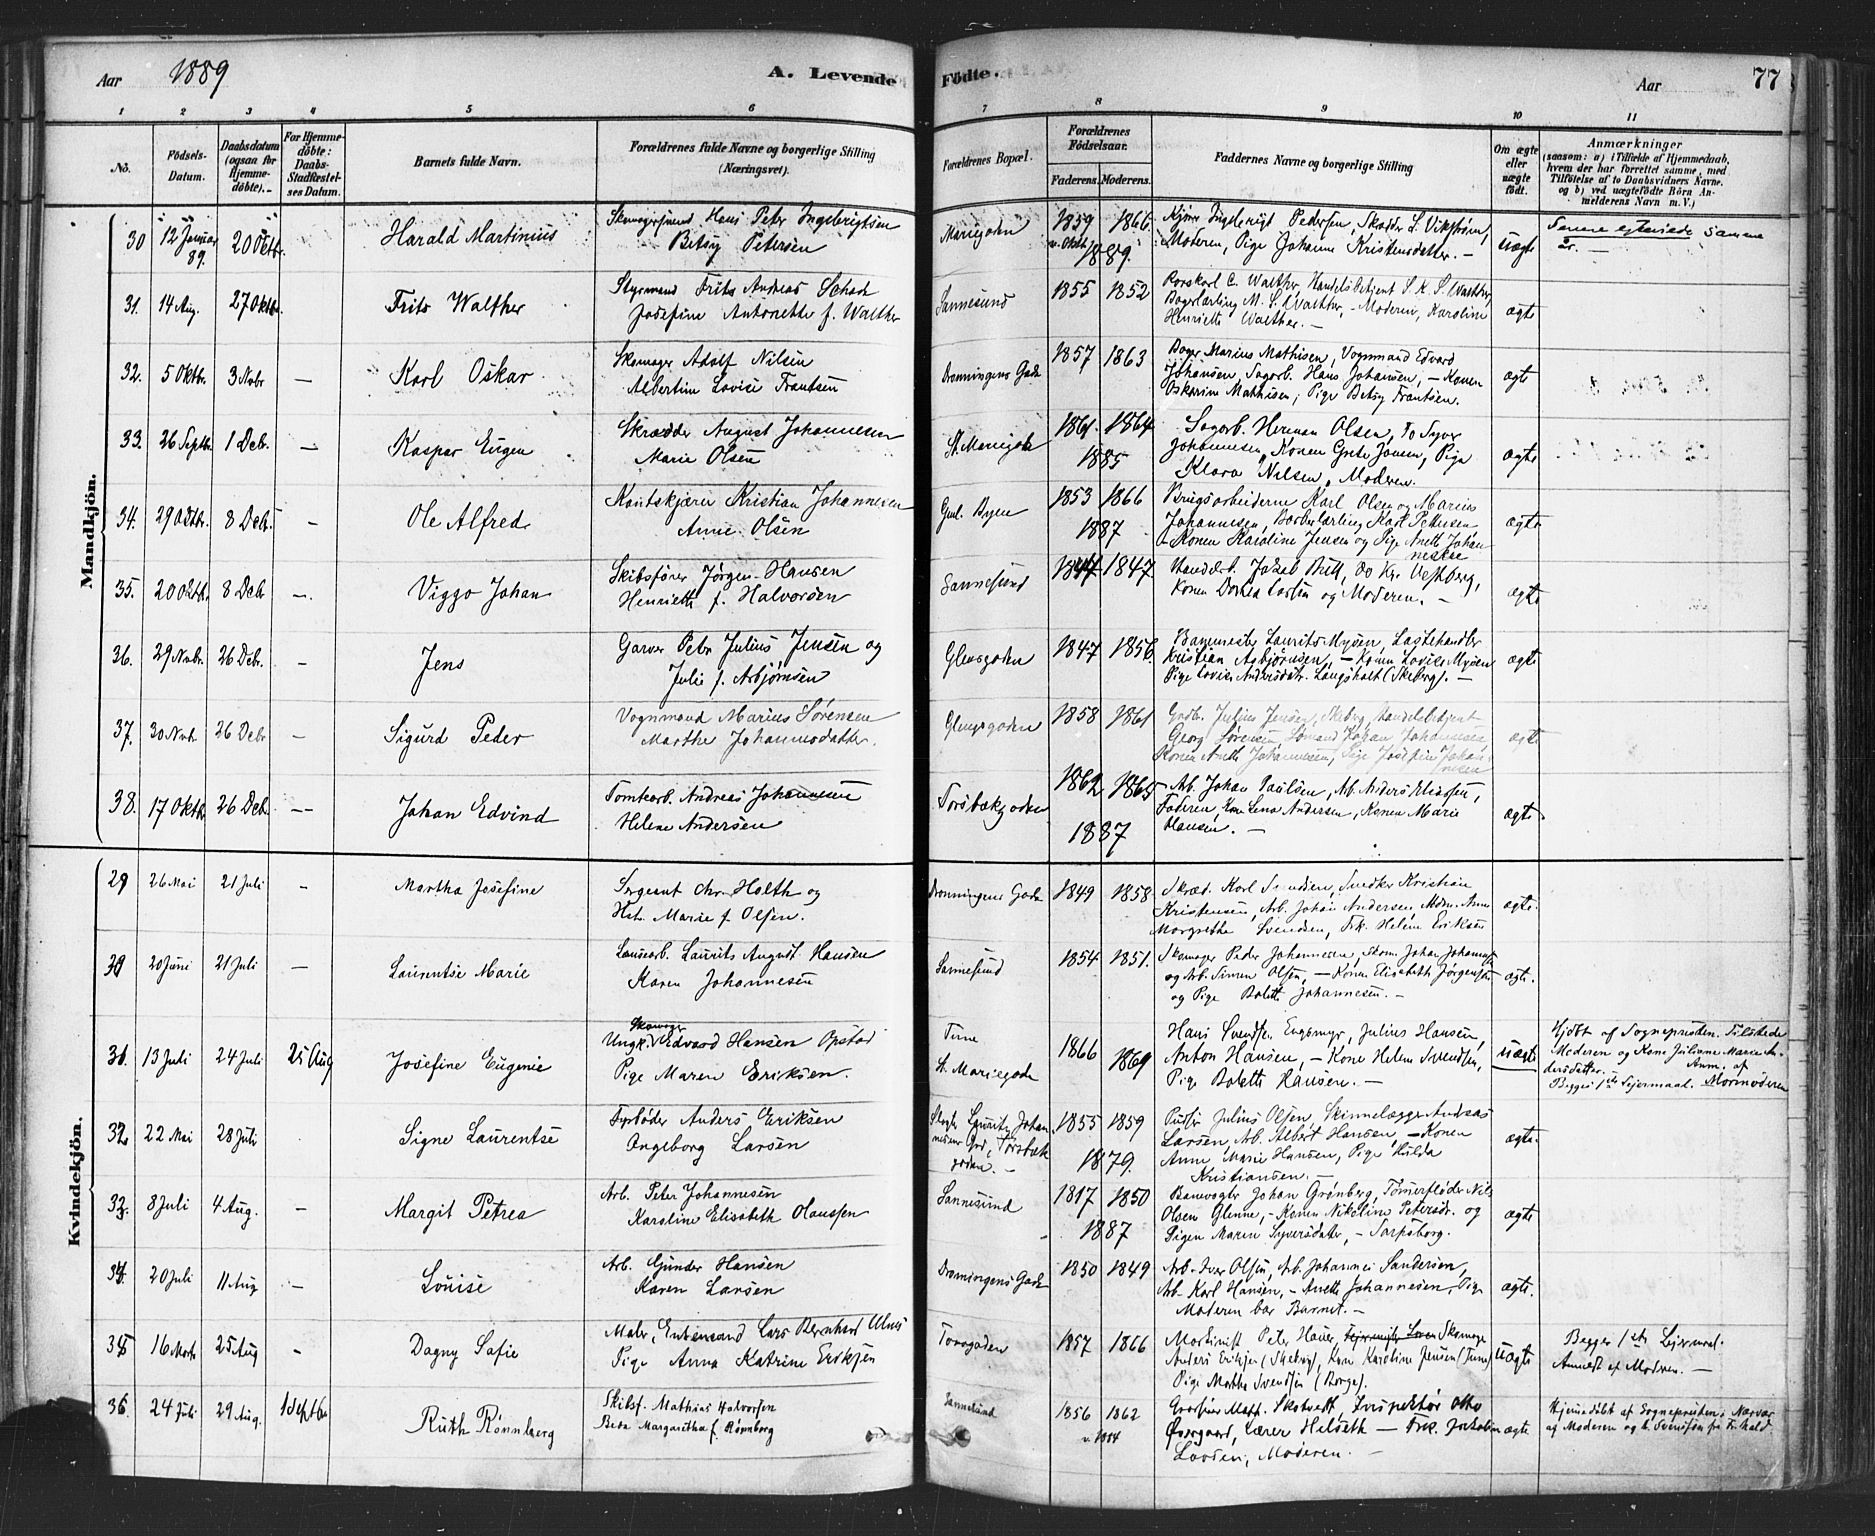 Aar 1889 A. Levende Födte. Aar 77
1 2 3 4 5 6 7 8 9 10 11
No. Födsels-Datum. Daabsdatum (ogsaa for Hjemme-döbte). For Hjemme-döbte: Daabs-Stadfæstel-ses Datum. Barnets fulde Navn. Forældrenes fulde Navne og borgerlige Stilling (Næringsvei). Forældrenes Bopæl. Forældrenes Födselsaar. Faderens. Moderens. Faddernes Navne og borgerlige Stilling Om ægte eller uægte födt. Anmærkninger
(saasom: a) i Tilfælde af Hjemmedaab,
hvem der har forrettet samme, med
Tilföielse af to Daabsvidners Navne,
og b) ved uægtefödte Börn An-
melderens Navn m. V.)
Mandkjön.
30 12 Januar 89. 20 Oktbr. Harald Martinius Skomagersvend Hans Peter Ingebrigtsen
Betsy Petersen
Mariegaden 1859 1866 1889. Ingebrigt Pedersen, Skrædder L. Vikstrøm,
Moderen, Pige Johanne Kristensdatter. — uægte Senere egteviede samme
31. 14 Aug. 27 Oktbr. Frits Walther Styrmand Frits Andreas Schade
Josefine Antonette f. Walther
Sannesund 1855 1852 C. Walther, Handelsbetjent S. K. S. Walther,
M. S. Walther, — Moderen, Karoline
Henriette Walther. — ægte
32. 5 Oktbr. 3 Nobr — Karl Oskar Skomager Adolf Nilsen
Albertine Lovise Frantsen
Dronningens Gade 1857 1863 Bager Marius Mathisen, Vognmand Edvard
Johansen, Sagarb. Hans Johansen, — Konen
Oskarine Mathisen, Pige Betsy Frantsen. ægte
33. 26 Septbr. 1 Deb. — Kaspar Eugen Skrædder August Johannesen
Marie Olsen
St. Mariegade 1861 1864 1885 Sagarb. Herman Olsen, Do Syver
Johannesen, Konen Grete Jensen, Pige
Klara Nilsen, Moderen. ægte
34. 29 Oktbr. 8 Deb. — Ole Alfred Kristian Johannesen
Anne Olsen
Gml. Byen 1853 1866 1887 Brugsarbeiderne Karl Olsen og Marius
Johannesen, Barberlærling Karl Pettersen
— Konen Karoline Jensen og Pige Anette Johan-
nesen ægte
35. 20 Oktbr. 8 Deb — Viggo Johan Skibsfører Jørgen Hansen
Henriette f. Halvorsen
Sannesund 1847 1847 Jakob Do Kr. Vestberg,
Konen Dorthea Larsen og Moderen. — ægte
36. 29 Nobr. 26 Deb. — Jens Garver Peter Julius Jensen og
Julie f. Asbjørnsen
Glengsgaden 1847 1856. Laurits Mysen,
Kristian Asbjørnsen, — Konen Lovise Mysen
Pige Lovise Andersdtr. Langsholt (Skeberg). — ægte
37. 30 Nobr. 26 Debr — Sigurd Peder Vognmand Marius Sørensen
Marthe Johannesdatter.
Glengsgaden 1858 1861 Gadb. Julius Jensen, Skeberg, Handelsbetjent
Georg Sørensen Sømand Johan Johannesen
Konen Anette Johannesen, Pige Josefine Johan-
nesen ægte
38. 17 Oktbr. 26 Deb. — Johan Edvind Tomtearb. Andreas Johannesen
Helene Andersen
Torsbækgaden 1862 1865 1887 Arb. Johan Paulsen, Arb. Anders Eliassen,
Faderen, Kone Lena Andersen, Konen Marie
Hansen. — ægte
Kvindekjön.
29 26 Mai 21 Juli — Martha Josefine Sergeant Chr. Holth og
Marie f. Olsen.
Dronningens Gade 1849 1858 Skræd. Karl Svendsen, Snedker Kristian
Kristensen, Arb. Johan Andersen, Anne
Margrethe Svendsen, Frk. Helene Eriksen ægte.
30 20 Juni 21 Juli — Laurentse Marie Laurits August Hansen
Karen Johannesen
Sannesund 1854 1851. Skomager Peder Johannesen, Skom. Johan Johannesen
og Arb. Simen Olsen, — Konen Elisabeth Jørgensen
og Pige Bolette Johannesen. — ægte.
31 13 Juli 24 Juli 25 Aug Josefine Eugenie Ungk. Skomager Edvard Hansen Opstad
Pige Maren Eriksen.
Tune
St. Mariegade 1866 1869 Hans Svendsen Engsmyr, Julius Hansen,
Anton Hansen, — Kone Helene Svendsen,
Pige Bolette Hansen. — uægte Hjdbt af Sognepresten. Tilstede
Moderen og Kone Juliane Marie An-
dersdatter. — Anm. af
Begges 1ste Leiermaal. Mormoderen
32 22 Mai 28 Juli Signe Laurentse Fyrbøder Anders Eriksen
Ingeborg Larsen
Laurits Johan-
nesens Grd, Torsbæk-
gaden. — 1855 1859 1879. Pudser Julius Olsen, Skinnelægger Andreas
Larsen, Arb. Albert Hansen, — Konen
Anne Marie Hansen, Pige Hulda
Kristiansen. — ægte.
33. 8 Juli 4 Aug. — Margit Petrea Arb. Peter Johannesen
Karoline Elisabeth Olaussen
Sannesund 1817 1850 1887 Banevogter Johan Grønberg, Tømmerfløder Nils
Olsen Glenne, — Konen Nikoline Petersdr. og
Pigen Maren Syversdatter, — Sarpsborg. ægte
34. 20 Juli 11 Aug — Lovise Arb. Gunder Hansen
Karen Larsen
Dronningens Gade 1850 1849 Arb. Iver Olsen, Arb. Johannes Sandersen,
Arb. Karl Hansen, — Anette Johannesen, Pige
Moderen bar Barnet. — ægte.
35 16 Marts 25 Aug — Dagny Sofie Maler, Enkemand Lars Bernhard
Pige Anna Katrine Eriksen
Torvgaden 1857 1866 Maskinist Peter Hauer, Skomager
Anders Eriksen (Skeberg), Kone Karoline Jensen (Tune)
Pige Marthe Svendsen (Borge). uægte Begges 1ste Leiermaal.
Anmeldt af Moderen. —
36. 24 Juli 29 Aug. 1 Septbr Ruth Rønneberg Skibsf. Mathias Halvorsen
Margaretha f. Rønneberg
Sannesund 1856 1862 v. 1884 Skotvedt, Inspektør Otto
Overgaard, Lærer Helseth — Frk. Jakobine
Lassen, Moderen. — ægte Hjemmedøbt af Sognepresten; Nærvær
af Moderen og Svendsen fra Fr.hald